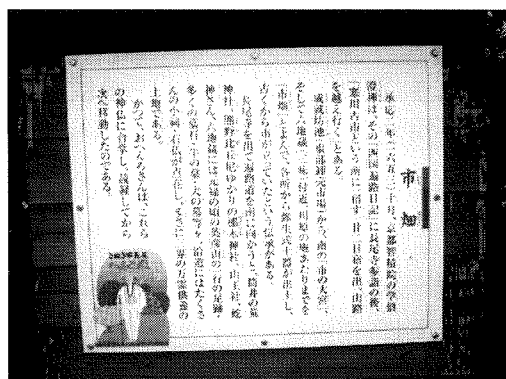 市畑
承応二年(一六五三)十月、京都智積院の学僧
澄禅は、その「四国遍路日記」に長尾寺参詣の後、
寒川古市という所に一宿す。廿一日宿を出、山路
を越え行く、とある。
成成坊池(東部卸売市場)から、南の「市の大宮」、
そして六地蔵 付近 川原の庵あたりまでを
「市畑」とよんで、各所から弥生式土器が出土し、
古くから市が立っていたという伝承がある。
長尾寺を出て遍路道を南に向かうと、筒井の荒
神社、熊野比丘尼ゆかりの 神社、山王社、蛇
神さん、六地蔵には元禄の頃の 山の行の足跡、
多くの墓石、牛の墓、犬の墓等々、沿道にはたくさ
んの小祠、石仏が点在し、まさに三界の万霊供養の
土地である。
かつて、おへんろさんは、これら
の神仏に合掌し、結縁してから
次へ移動したのである。